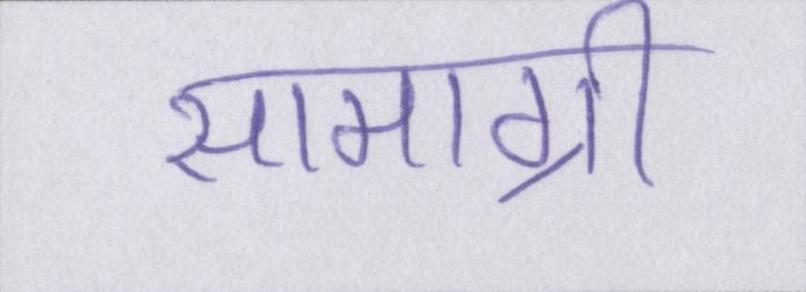 सामाग्री